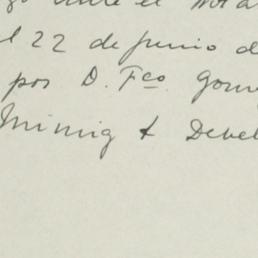 ante el Nota
l 22 de junio d
por D. Fco. Gom
Mining & Devel